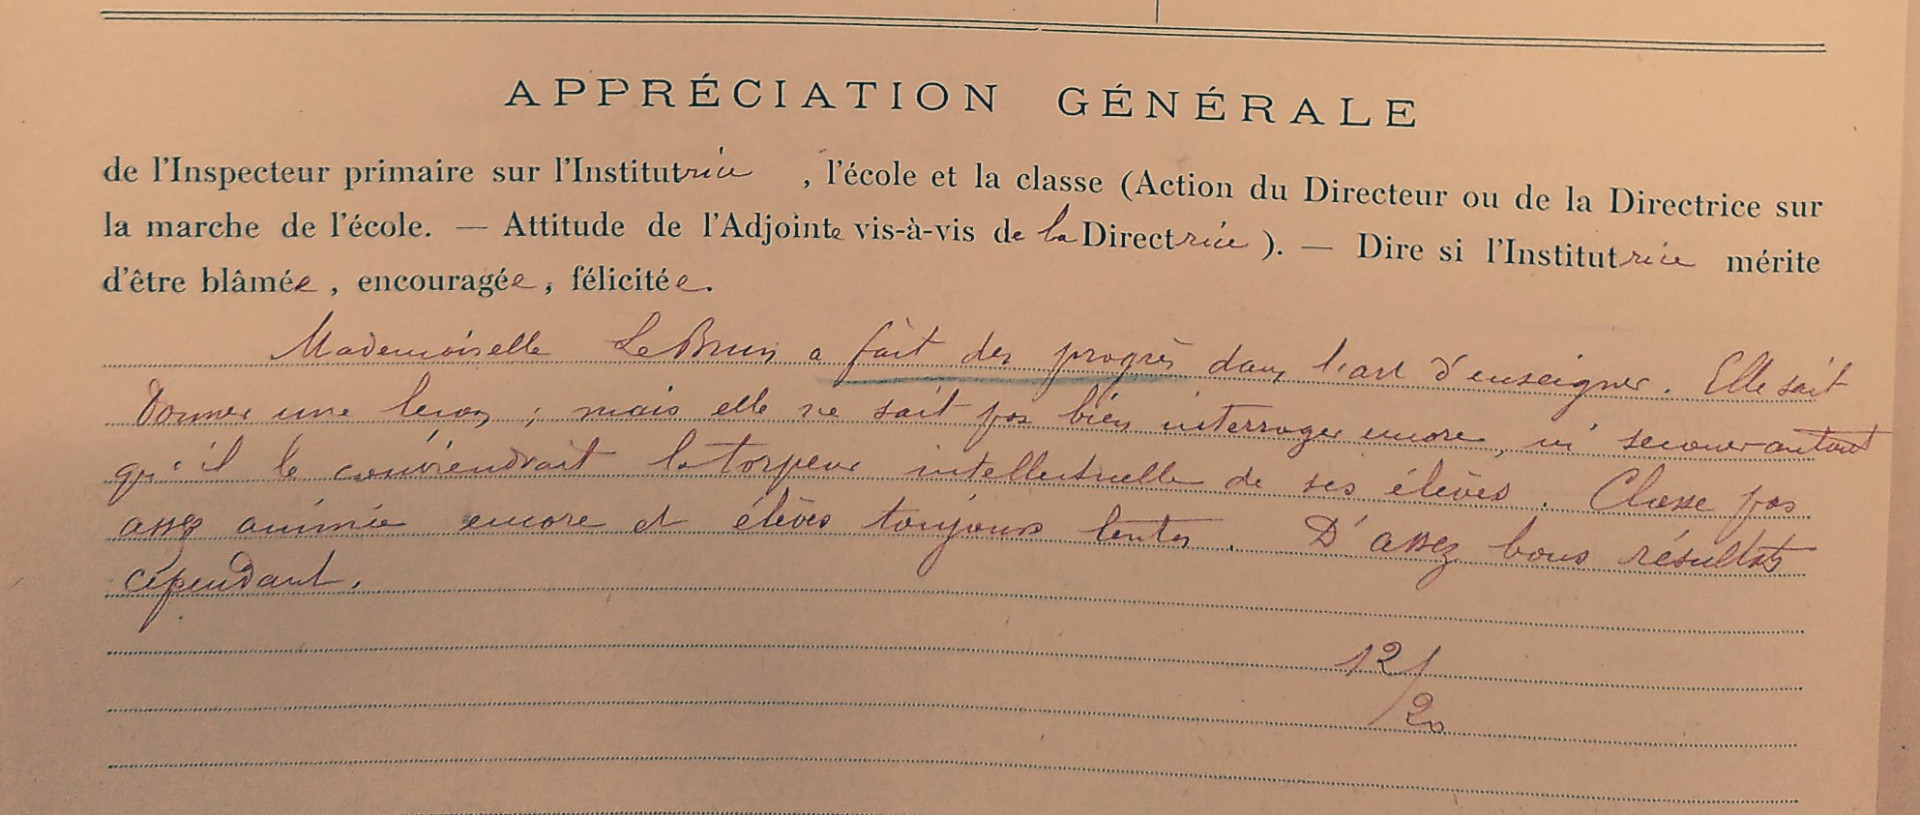 APPRÉCIATION GÉNÉRALE
de l'Inspecteur primaire sur l'Institutrice , l'école et la classe (Action du Directeur ou de la Directrice sur
la marche de l'école. — Attitude de l'Adjointe vis-à-vis de la Directrice ). — Dire si l'Institutrice mérite
d'être blâmée , encouragée , félicitée .
Mademoiselle LeBrun a fait des progrès dans l'art d'enseigner. Elle sait
donner une leçon ; mais elle ne sait pas bien interroger encore, ni secouer autant
qu'il le conviendrait la torpeur intellectuelle de ses élèves. Classe pas
assez animée encore et élèves toujours lentes. D'assez bons résultats
cependant.
12/20